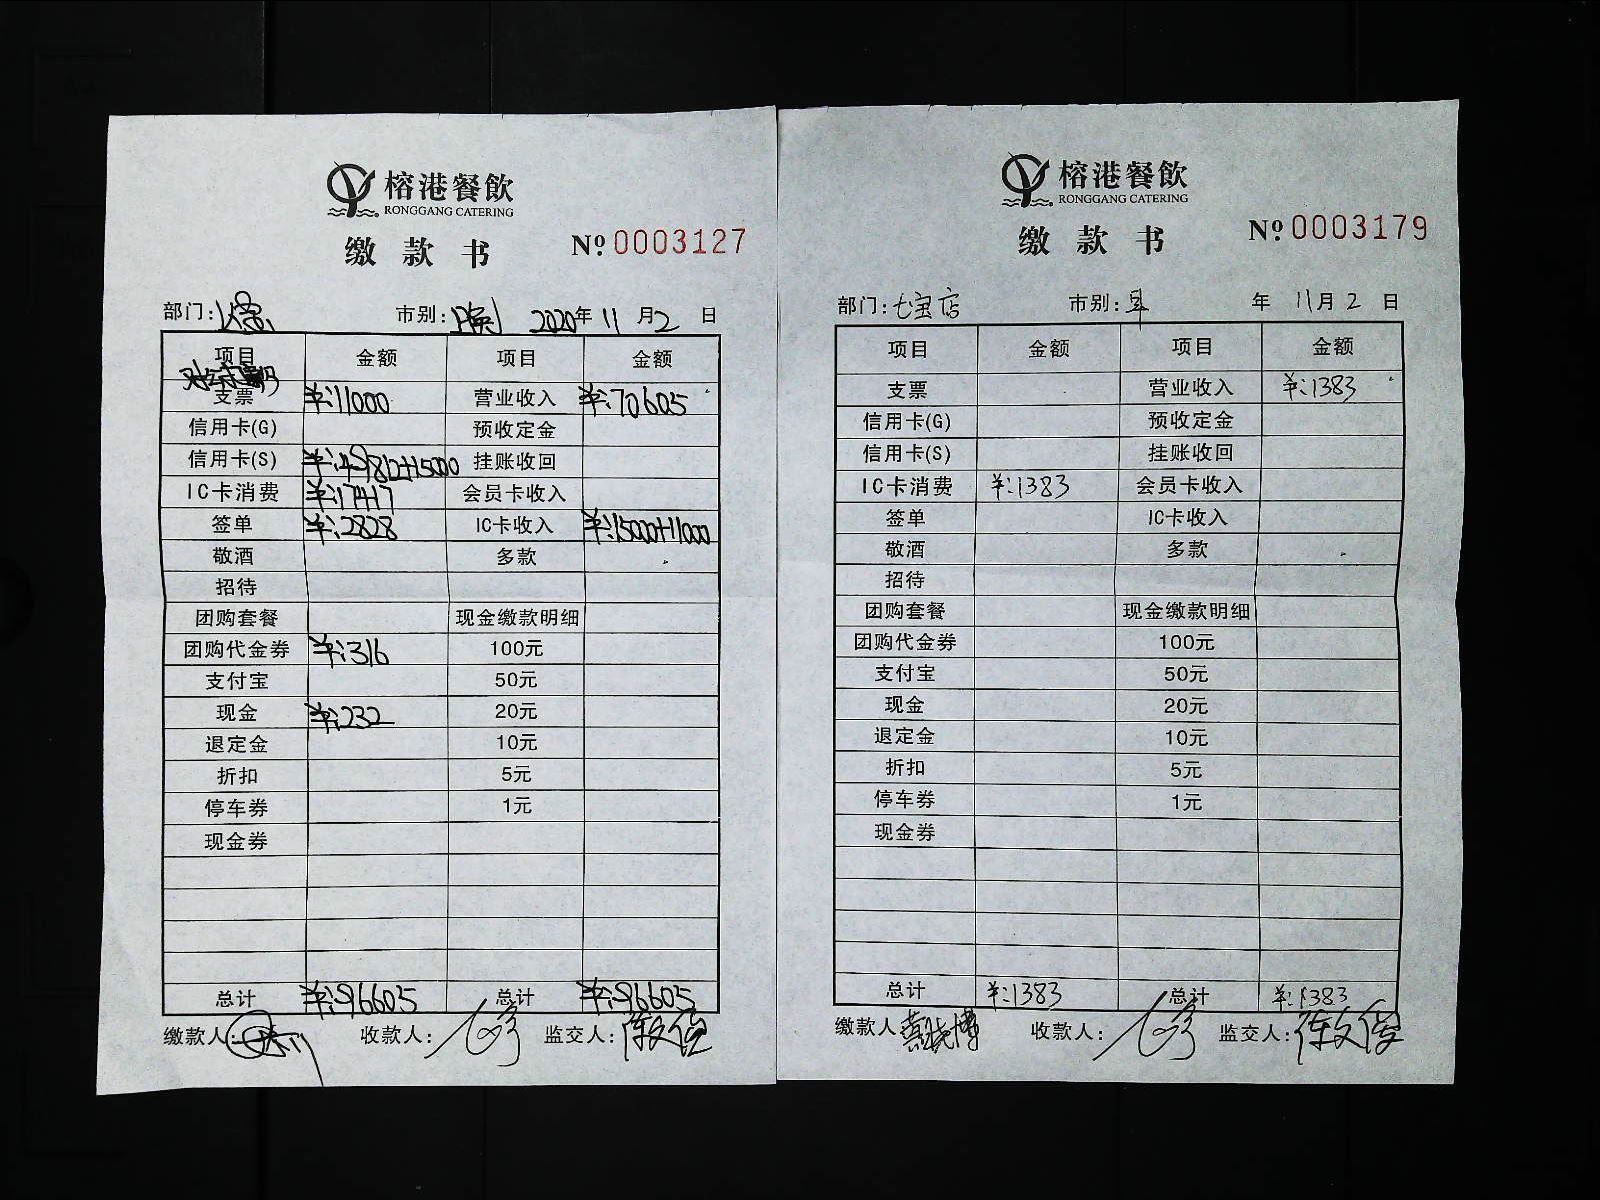 榕港餐飲
RONGGANG CATERING
缴款书
№0003127
部门: 市别: 2020年11月2日
项目 金额 项目 金额
支票 ¥:11000 营业收入 ¥:70605
信用卡(G) 预收定金
信用卡(S) ¥:49812+15000 挂账收回
IC卡消费 ¥:17417 会员卡收入
签单 ¥:2828 IC卡收入 ¥:15000+11000
敬酒 多款
招待
团购套餐 现金缴款明细
团购代金券 ¥:316 100元
支付宝 50元
现金 ¥:232 20元
退定金 10元
折扣 5元
停车券 1元
现金券
总计 ¥:96605 总计 ¥:96605
缴款人: 收款人: 监交人:
榕港餐飲
RONGGANG CATERING
缴款书
№0003179
部门:七宝店 市别:早 年11月2日
项目 金额 项目 金额
支票 营业收入 ¥:1383
信用卡(G) 预收定金
信用卡(S) 挂账收回
IC卡消费 ¥:1383 会员卡收入
签单 IC卡收入
敬酒 多款
招待
团购套餐 现金缴款明细
团购代金券 100元
支付宝 50元
现金 20元
退定金 10元
折扣 5元
停车券 1元
现金券
总计 ¥:1383 总计 ¥:1383
缴款人: 收款人: 监交人: